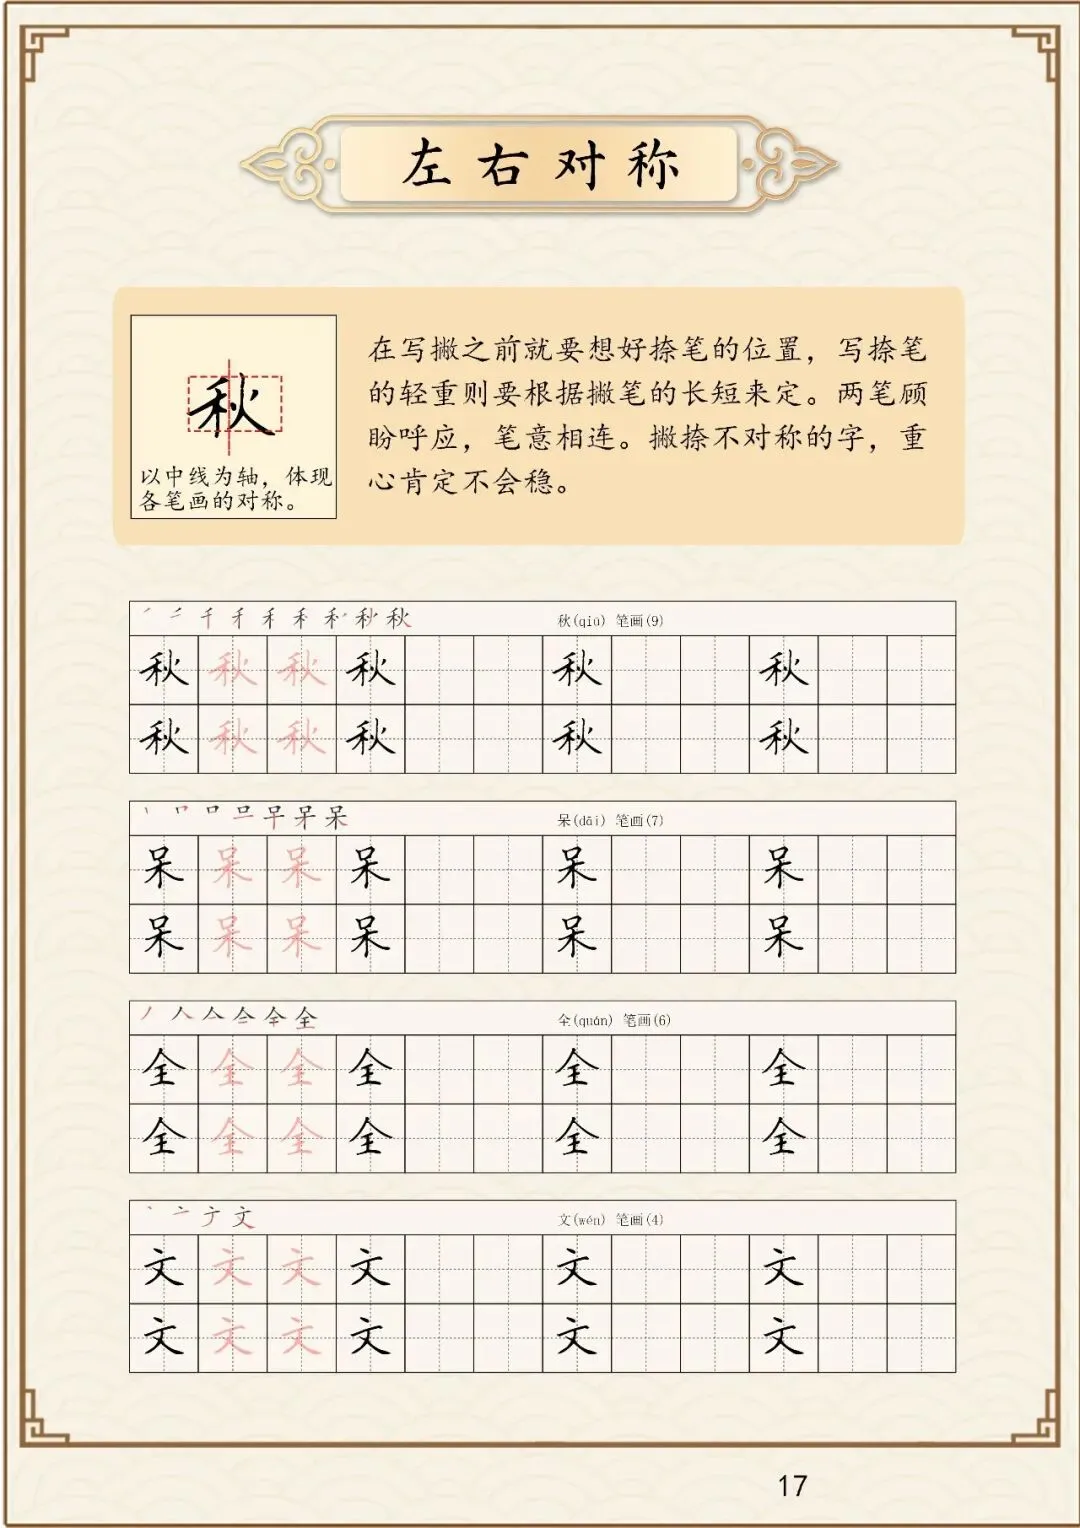 左右对称
秋
以中线为轴，体现
各笔画的对称。
在写撇之前就要想好捺笔的位置，写捺笔
的轻重则要根据撇笔的长短来定。两笔顾
盼呼应，笔意相连。撇捺不对称的字，重
心肯定不会稳。
秋(qiū) 笔画(9)
秋 秋 秋 秋 秋 秋
秋 秋 秋 秋 秋 秋
呆(dāi) 笔画(7)
呆 呆 呆 呆 呆 呆
呆 呆 呆 呆 呆 呆
全(quán) 笔画(6)
全 全 全 全 全 全
全 全 全 全 全 全
文(wén) 笔画(4)
文 文 文 文 文 文
文 文 文 文 文 文
17